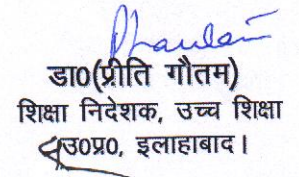 डा0(प्रीति गौतम)
शिक्षा निदेशक, उच्च शिक्षा
उ0प्र0, इलाहाबाद।